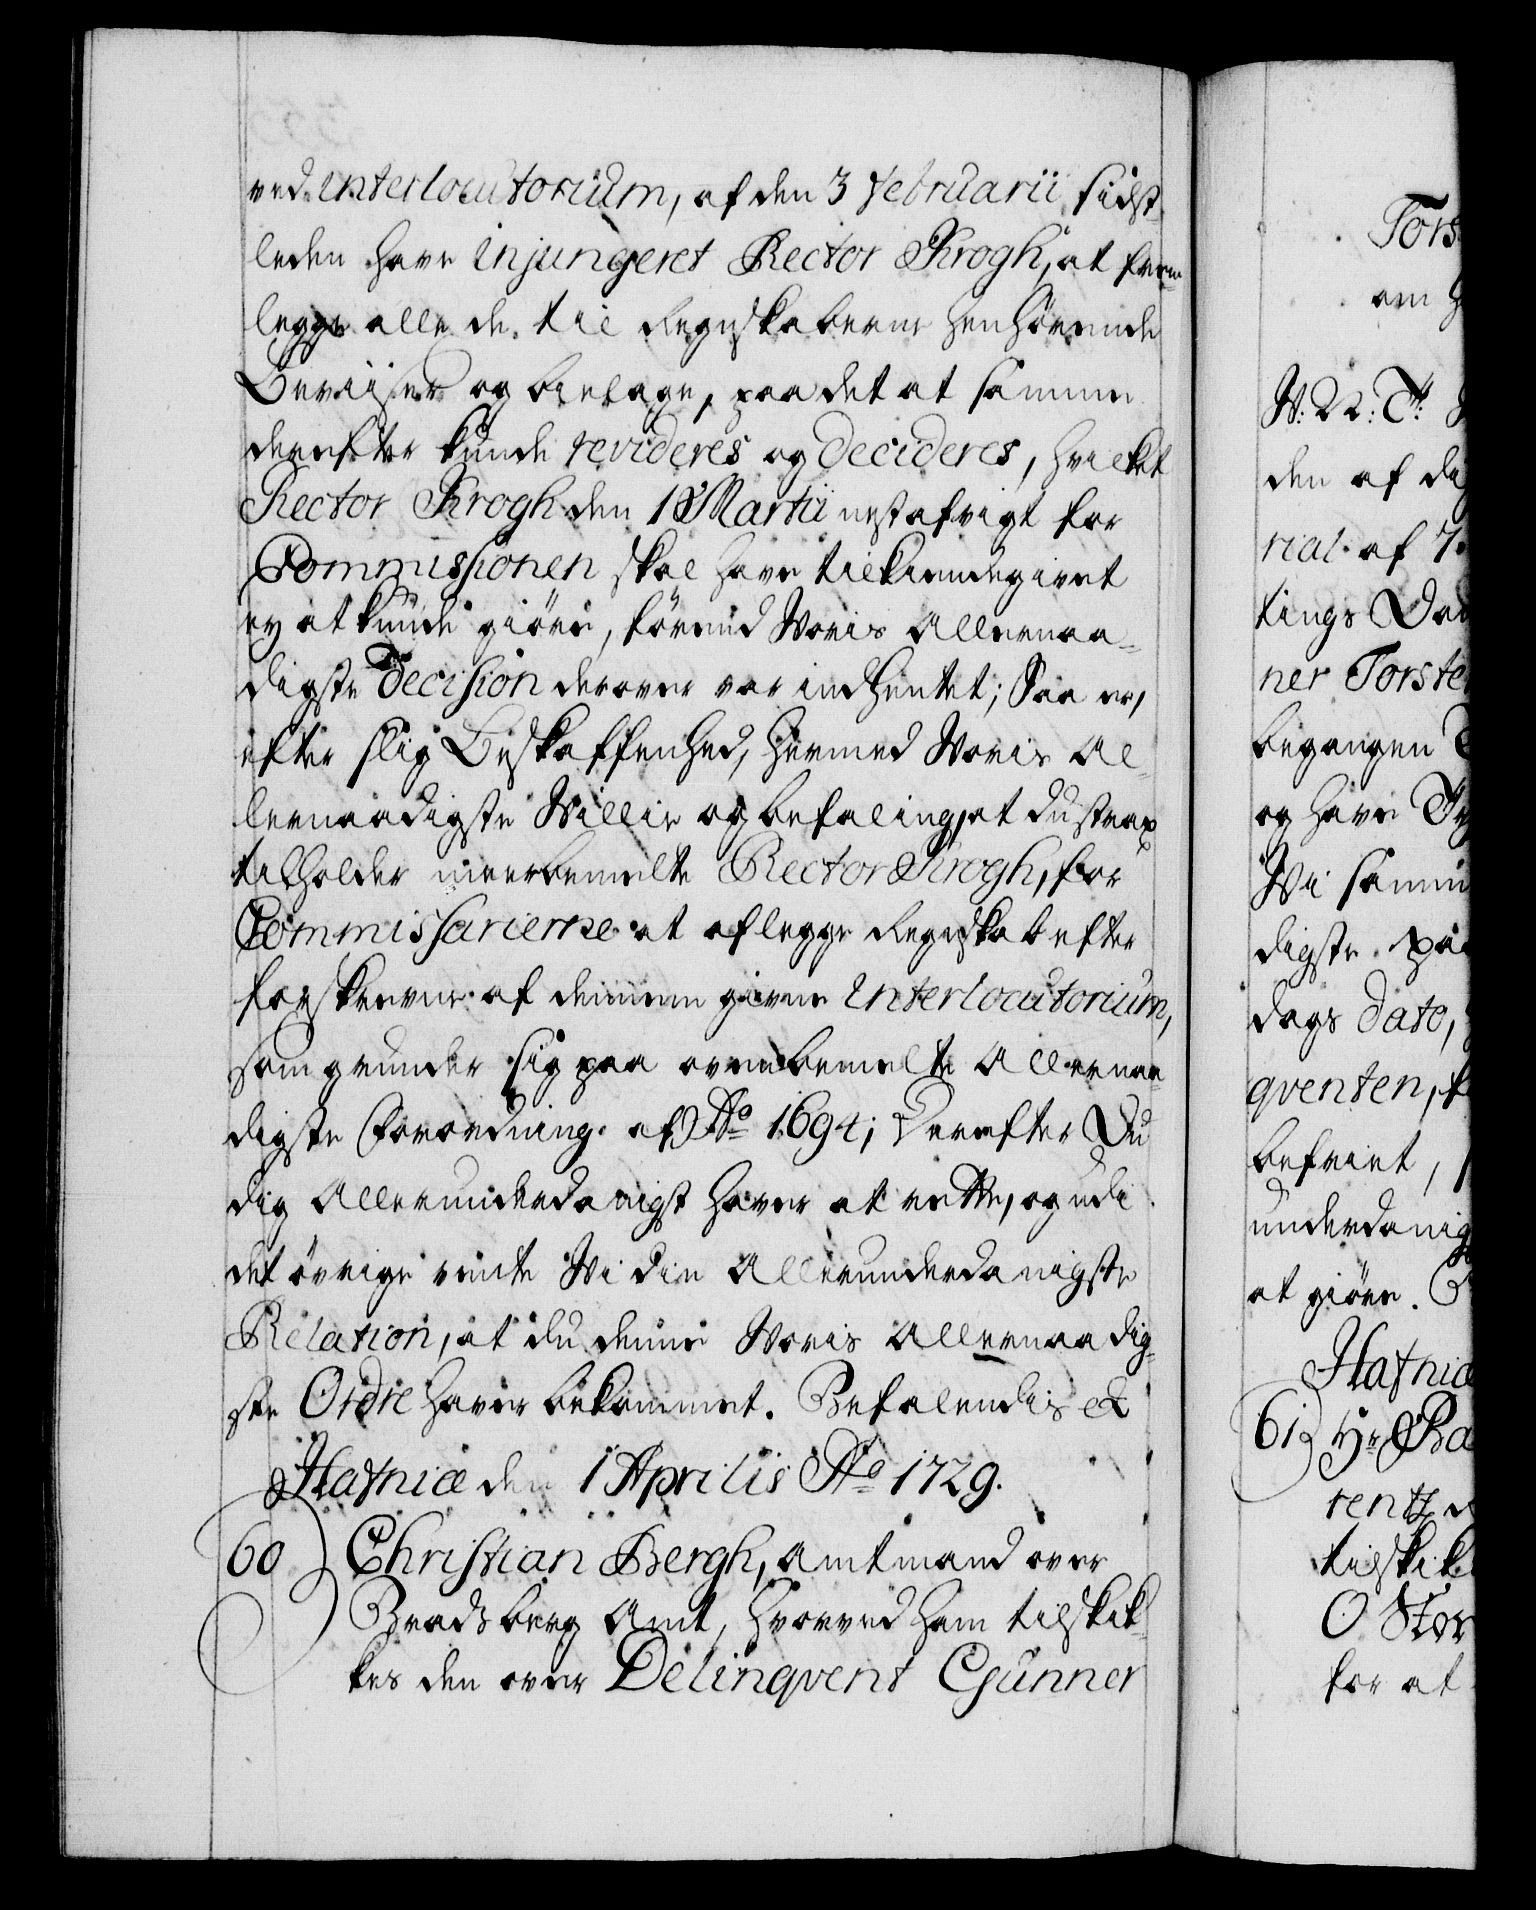 ved Interlocutorium, af den 3 Februarii sidst
leden have injungeret Rector Krogh, at frem
legge alle de til Regnskaberne henhørende
Beviiser og bielage, paa det at samme
derefter kunde revideres og decideres, hvilket
Rector Krogh den 18 Martii nestafvigt for
Commissionen skal have tilkiendegivet
ey at kunde giøre, førend Voris Allernaa-
digste Decision derover var indhentet; Saa er,
efter slig Beskaffenhed, hermed Voris Al-
lernaadigste Villie og befaling, at du strax
tilholder meerbemelte Rector Krogh, for
Commissarierne at aflegge Regnskab efter
forskrevne af dennem givne Interlocutorium,
som grunder sig paa ovenbemelte Allernaa-
digste Forordning af Ao 1694; Derefter Du
dig Allerunderdanigst haver at rette, og udi
det øvrige vente Vi din Allerunderdanigste
Relation, at du denne Voris Allernaadig-
ste Ordre haver bekommet. Befalendis &
Hafniæ den 1 Aprilis Ao 1729.
60) Christian Bergh, Amtmand over
Bradsberg Amt, hvorved ham tilskik-
kes den over Delinqvent Gunner
Tors
om
V: Vi: T:
den af da
rial af 7
tings
ner Torste
begangen
og have
Vi samm
digste paa
dags dato,
qventen, f
befriet,
underdanig
at giøre.
Hafniæ
61) Hr Ba
rentz
tilskik
O Stor
for at